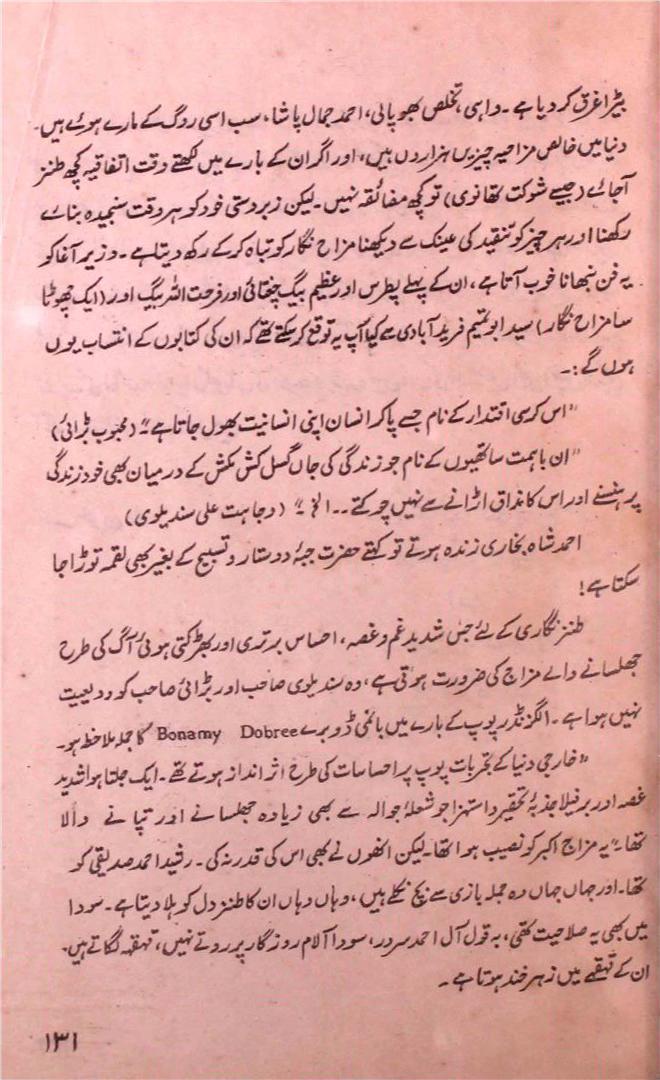 بیڑا غرق کر دیا ہے۔ واہی، تخلص بھوپالی، احمد جمال پاشا، سب اسی روگ کے مارے ہوئے ہیں۔
دنیا میں خالص مزاحیہ چیزیں ہزاروں ہیں، اور اگر ان کے بارے میں لکھتے وقت اتفاقیہ کچھ طنز
آجائے (جیسے شوکت تھانوی) تو کچھ مضائقہ نہیں۔ لیکن زبردستی خود کو ہر وقت سنجیدہ بنائے
رکھنا اور ہر چیز کو تنقید کی عینک سے دیکھنا مزاح نگار کو تباہ کرکے رکھ دیتا ہے۔ وزیر آغا کو
یہ فن نبھانا خوب آتا ہے، ان کے پہلے پطرس اور عظیم بیگ چغتائی اور فرحت اللہ بیگ اور (ایک چھوٹا
سا مزاح نگار) سید ابو تمیم فرید آبادی سے کیا آپ یہ توقع کر سکتے تھے کہ ان کی کتابوں کے انتساب یوں
ہوں گے:۔
"اس کرسی اقتدار کے نام جسے پاکر انسان اپنی انسانیت بھول جاتا ہے۔" (محبوب بڑائی)
"ان باہمت ساتھیوں کے نام جو زندگی کی جاں گسل کش مکش کے درمیان بھی خود زندگی
پر ہنسنے اور اس کا مذاق اڑانے سے نہیں چوکتے۔۔ الخ۔" (وجاہت علی سندیلوی)
احمد شاہ بخاری زندہ ہوتے تو کہتے حضرت جبہ و دستار و تسبیح کے بغیر بھی لقمہ توڑا جا
سکتا ہے!
طنز نگاری کے لئے جس شدید غم و غصہ، احساس برتری اور بھڑکتی ہوئی آگ کی طرح
جھلسانے والے مزاج کی ضرورت ہوتی ہے، وہ سندیلوی صاحب اور بڑائی صاحب کو ودیعت
نہیں ہوا ہے۔ الگزنڈر پوپ کے بارے میں بانمی ڈوبرے Bonamy Dobree کا جملہ ملاحظہ ہو۔
"خارجی دنیا کے تجربات پوپ پر احساسات کی طرح اثر انداز ہوتے تھے۔ ایک جلتا ہوا شدید
غصہ اور برفیلا جذبۂ تحقیر و استہزا جو شعلۂ جوالہ سے بھی زیادہ جھلسانے اور تپانے والا
تھا۔" یہ مزاج اکبر کو نصیب ہوا تھا۔ لیکن انھوں نے بھی اس کی قدر نہ کی۔ رشید احمد صدیقی کو
تھا۔ اور جہاں جہاں وہ جملہ بازی سے بچ نکلے ہیں، وہاں وہاں ان کا طنز دل کو ہلا دیتا ہے۔ سودا
میں بھی یہ صلاحیت تھی، بہ قول آل احمد سرور، سودا آلام روزگار پر روتے نہیں، قہقہہ لگاتے ہیں۔
ان کے قہقہے میں زہر خند ہوتا ہے۔
۱۳۱